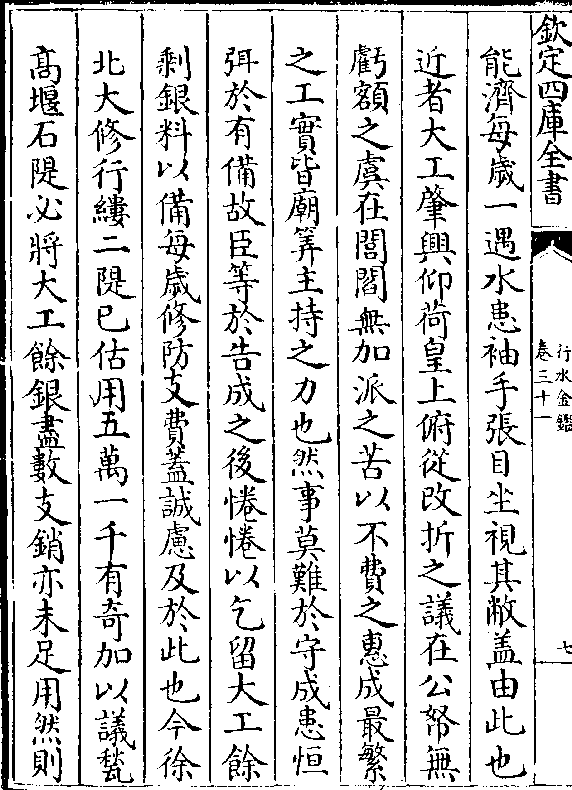 欽定四庫全書
行水金鑑
卷三十一
七
能濟每歲一遇水患袖手張目坐視其敝盖由此也
近者大工肇興仰荷皇上俯從改折之議在公帑無
虧額之虞在閭閻無加派之苦以不費之惠成最繁
之工實皆廟筭主持之力也然事莫難於守成患恒
弭於有備故臣等於告成之後惓惓以乞留大工餘
剩銀料以備每歲修防支費蓋誠慮及於此也今徐
北大修行縷二隄已估用五萬一千有奇加以議甃
髙堰石隄必將大工餘銀盡數支銷亦未足用然則